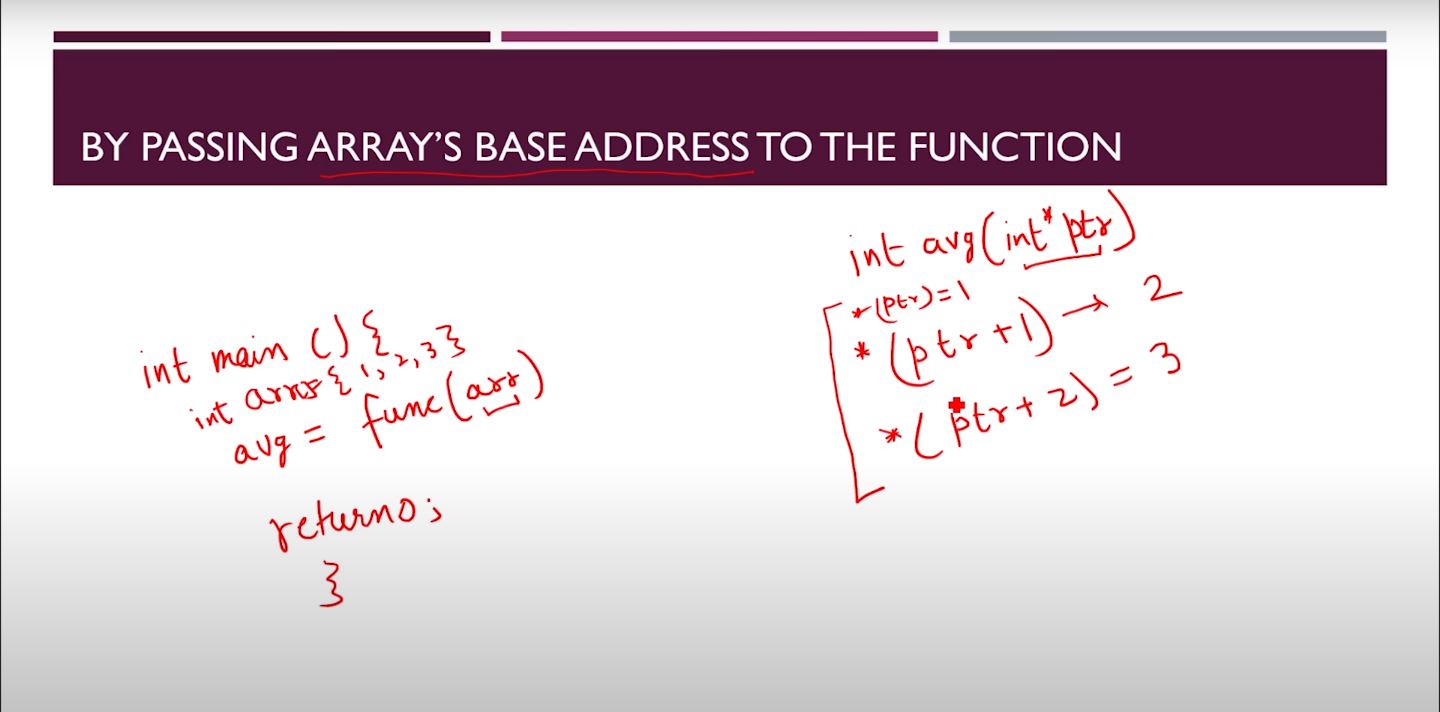 BY PASSING ARRAY'S BASE ADDRESS TO THE FUNCTION
int main () {
int arr {1, 2, 3}
avg = func(arr)
return 0;
}
int avg(int* ptr)
*(ptr)=1
*(ptr+1) → 2
*(ptr+2) = 3